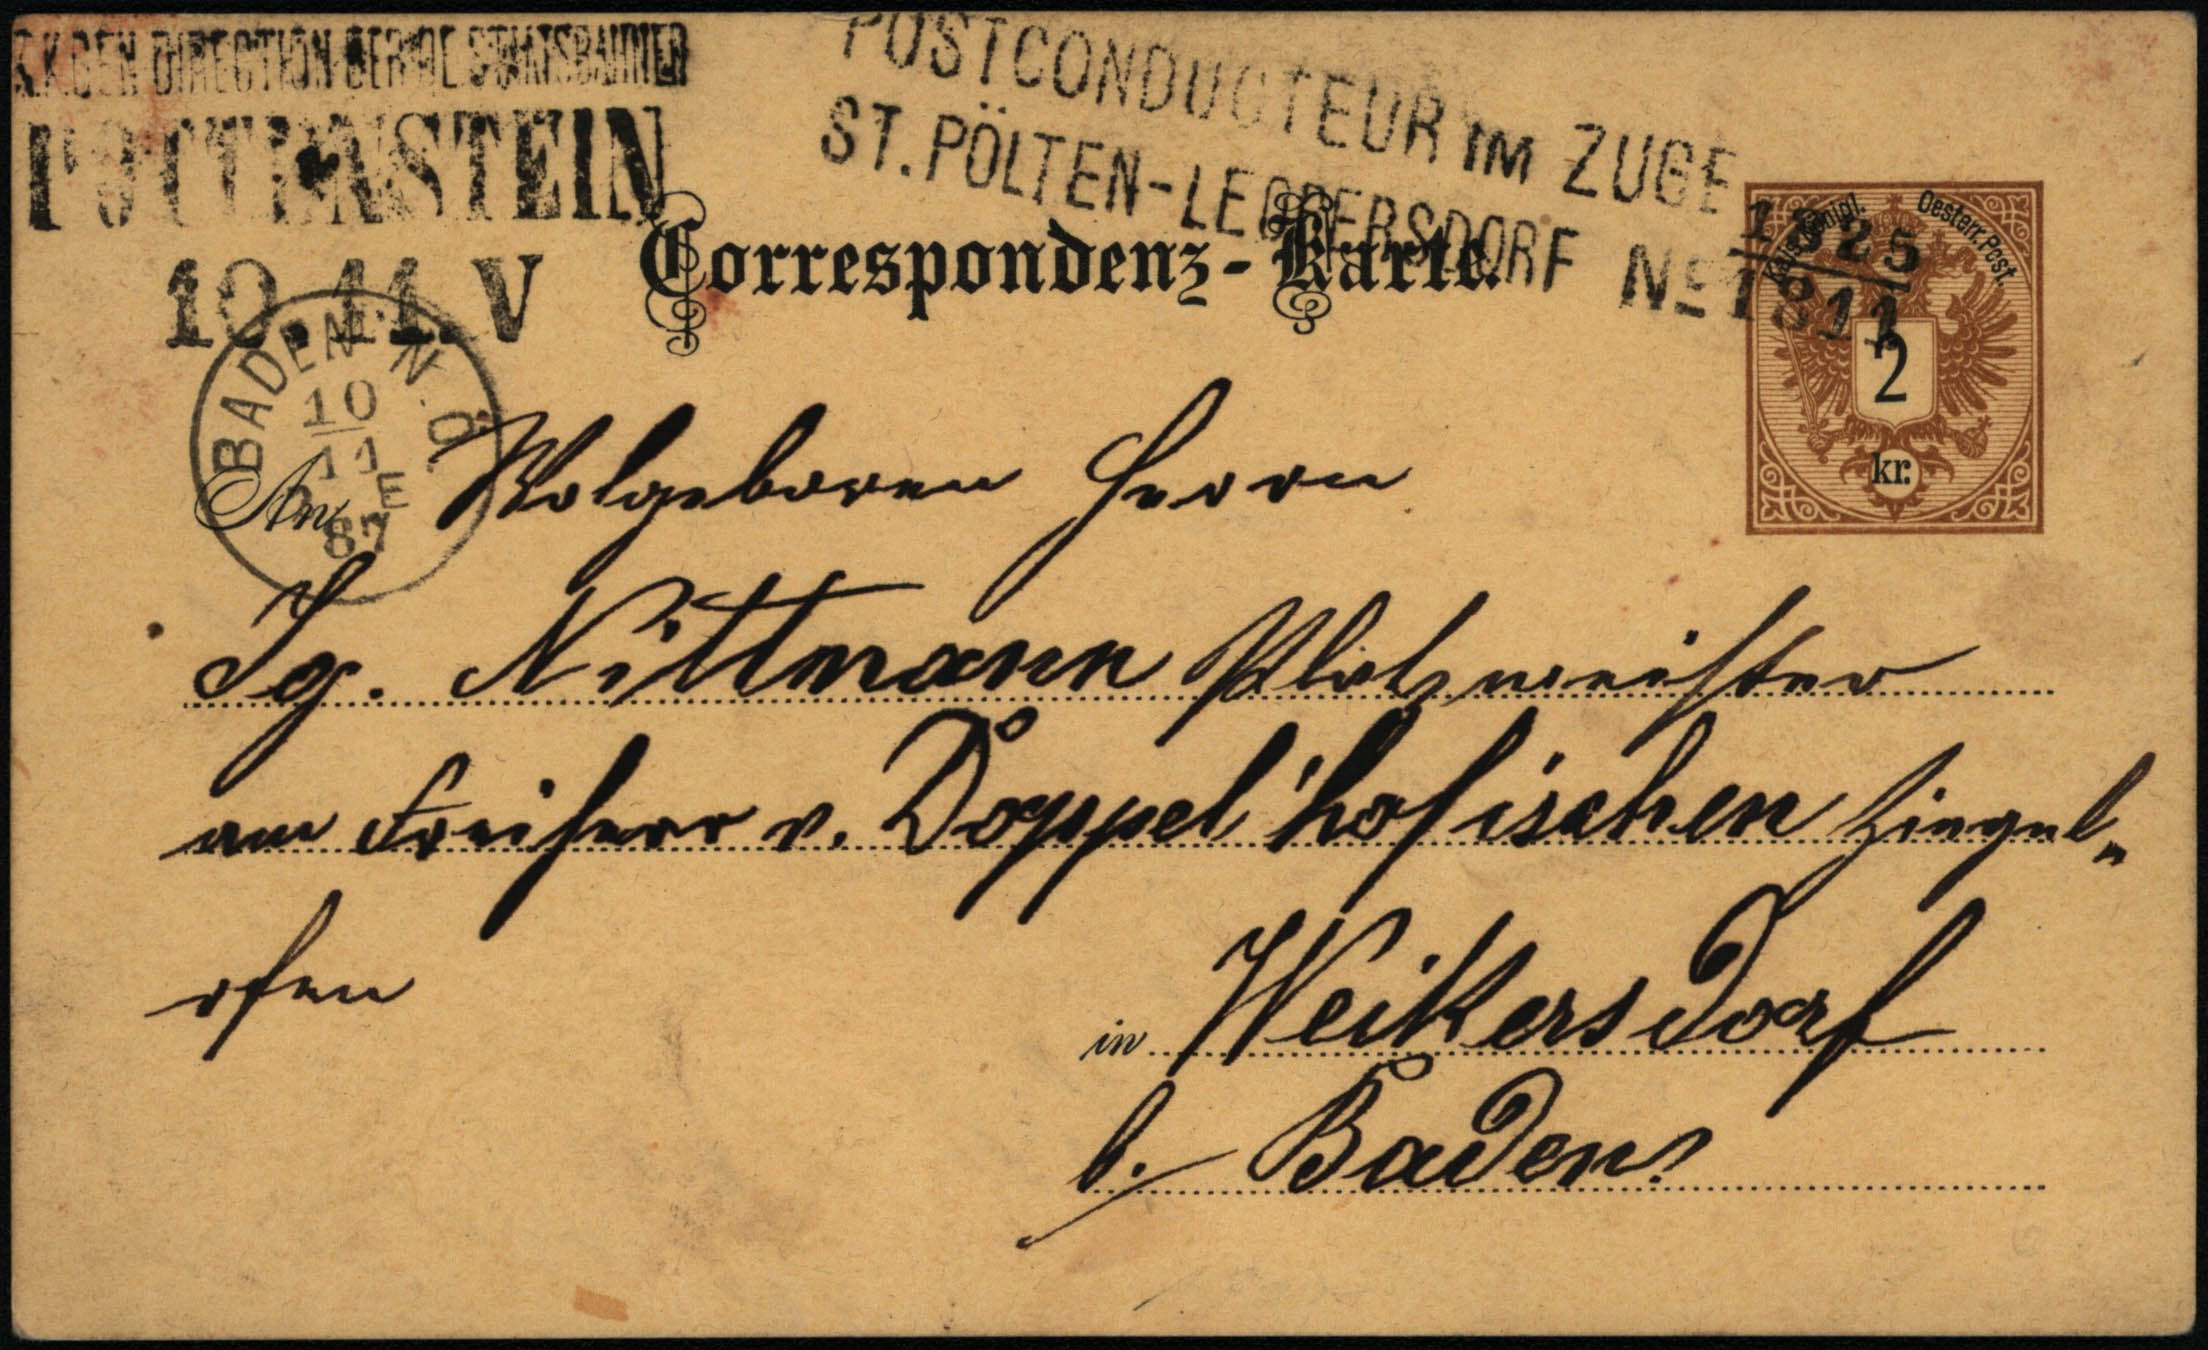 K.K.GEN.DIRECTION DER OE.STAATSBAHNEN
POTTENSTEIN
10.11.V
POSTCONDUCTEUR IM ZUGE
ST.PÖLTEN-LEOBERSDORF No 1825
1811
Correspondenz-Karte.
Kais. Königl. Oesterr. Post.
2
kr.
BADEN N.Ö.
10
11
E
87
An Wolgeboren Herrn
Ig. Nittmann Platzmeister
am Freiherr v. Doppel'hofischen Ziegel„
ofen
in Weikersdorf
b. Baden.